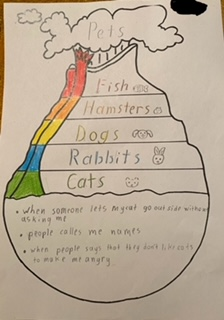 Pets
Fish
Hamsters
Dogs
Rabbits
Cats
• when someone lets my cat go outside without
asking me
• people calles me names
• when people says that they don't like cats
to make me angry